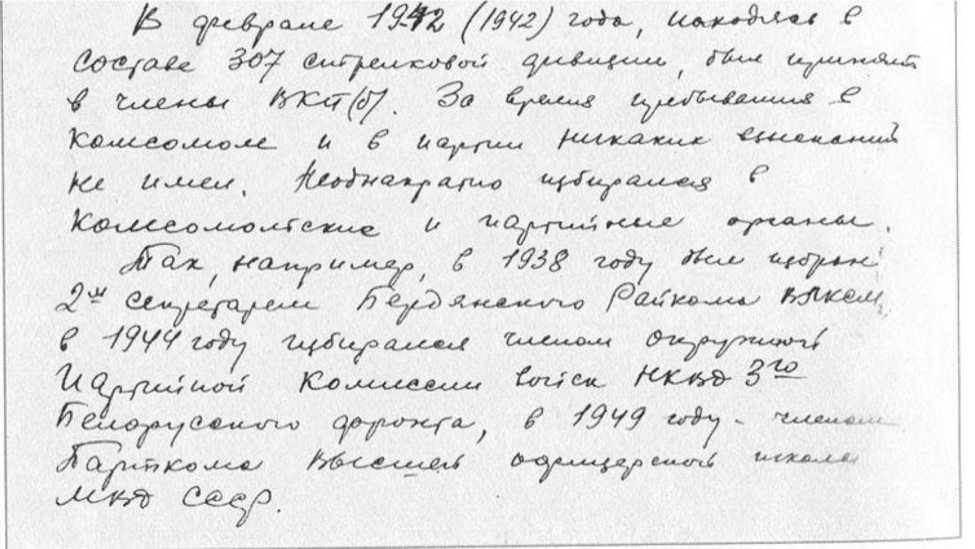 В феврале 1942 (1942) года, находясь в
составе 307 стрелковой дивизии, был принят
в члены ВКП(б). За время пребывания в
комсомоле и в партии никаких взысканий
не имел. Неоднократно избирался в
комсомольские и партийные органы.
Так, например, в 1938 году был избран
2м секретарем Бердянского Райкома ВЛКСМ,
в 1944 году избирался членом окружной
Партийной Комиссии войск НКВД 3го
Белорусского фронта, в 1949 году - членом
Парткома Высшей офицерской школы
МВД СССР.